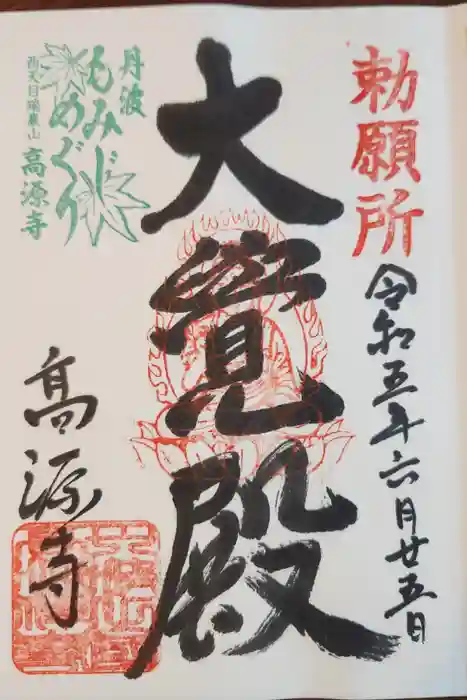 勅願所
令和五年六月廿五日
大覺殿
丹波
もみじめぐり
西天目瑞巖山
高源寺
高源寺